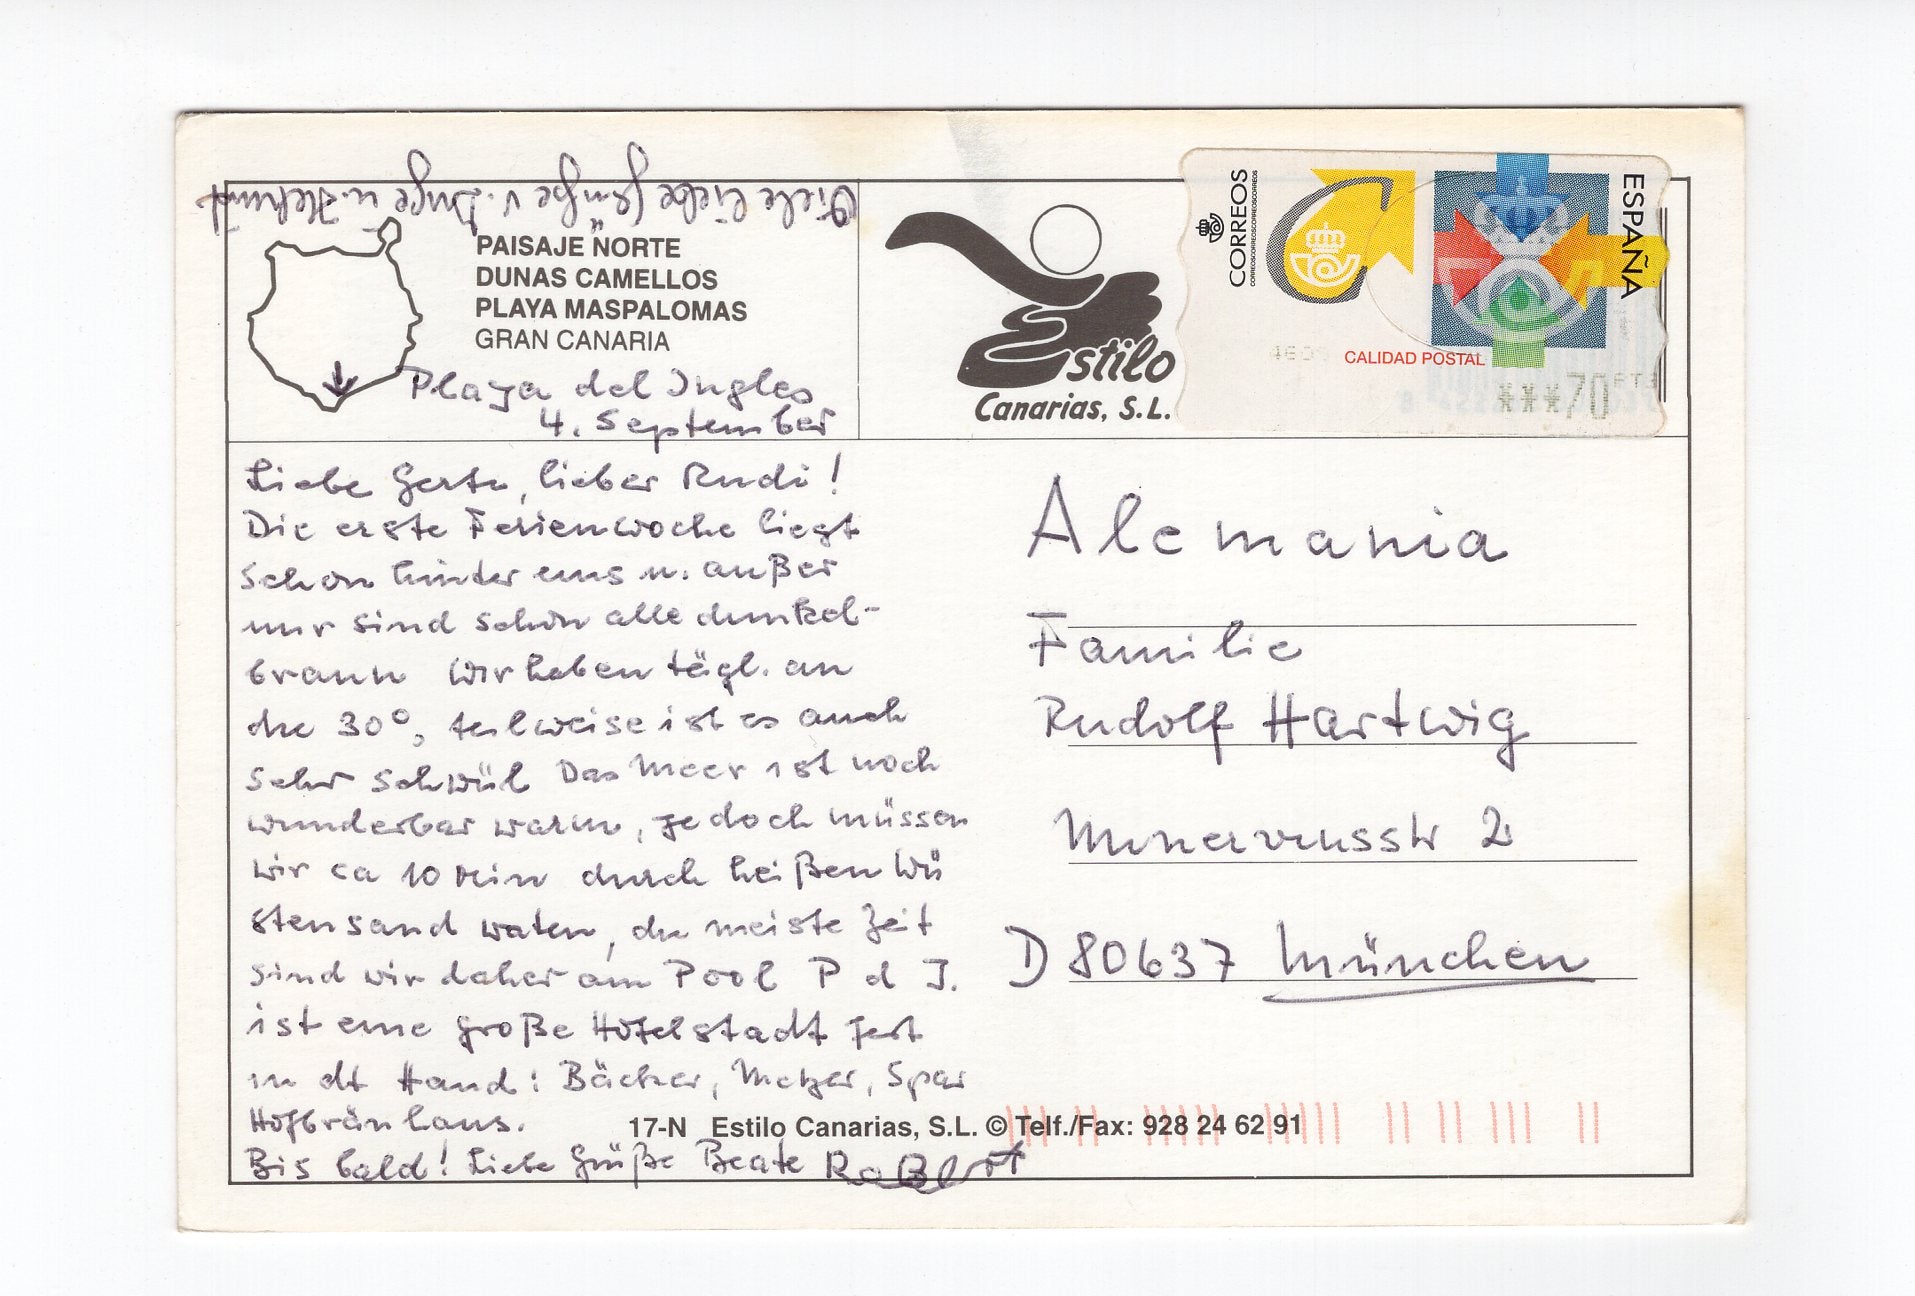 Viele liebe Grüße v. Inge u. Helmut
PAISAJE NORTE
DUNAS CAMELLOS
PLAYA MASPALOMAS
GRAN CANARIA
Playa del Ingles
4. September
Estilo
Canarias, S.L.
CORREOS
ESPAÑA
CALIDAD POSTAL
***70 PTS
Liebe Gerta, lieber Rudi!
Die erste Ferienwoche liegt
schon hinter uns u. außer
mir sind schon alle dunkel-
braun Wir haben tägl. an
die 30°, teilweise ist es auch
sehr schwül Das Meer ist noch
wunderbar warm, jedoch müssen
wir ca 10 Min durch heißen Wü
stensand waten, die meiste Zeit
sind wir daher am Pool P d I.
ist eine große Hotelstadt fest
in dt Hand: Bäcker, Metzger, Spar
Hofbräuhaus.
Bis bald! Liebe Grüße Beate
Alemania
Familie
Rudolf Hartwig
Minervusstr 2
D 80637 München
17-N Estilo Canarias, S.L. © Telf./Fax: 928 24 62 91